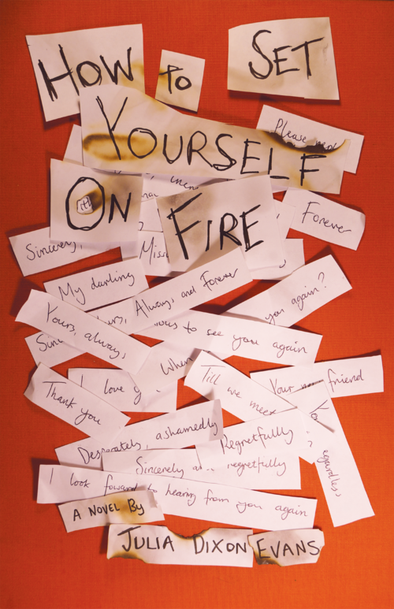 HOW TO SET
YOURSELF
ON FIRE
Please
Forever
Sincerely,
Miss
My darling
Always and Forever
you again?
Yours, always,
to see you again
Sinc
When
I love y
Till we meet
Your friend
Thank you
Desperately, ashamedly
Regretfully
regardless
Sincerely and regretfully
I look foward to hearing from you again
A NOVEL BY
JULIA DIXON EVANS